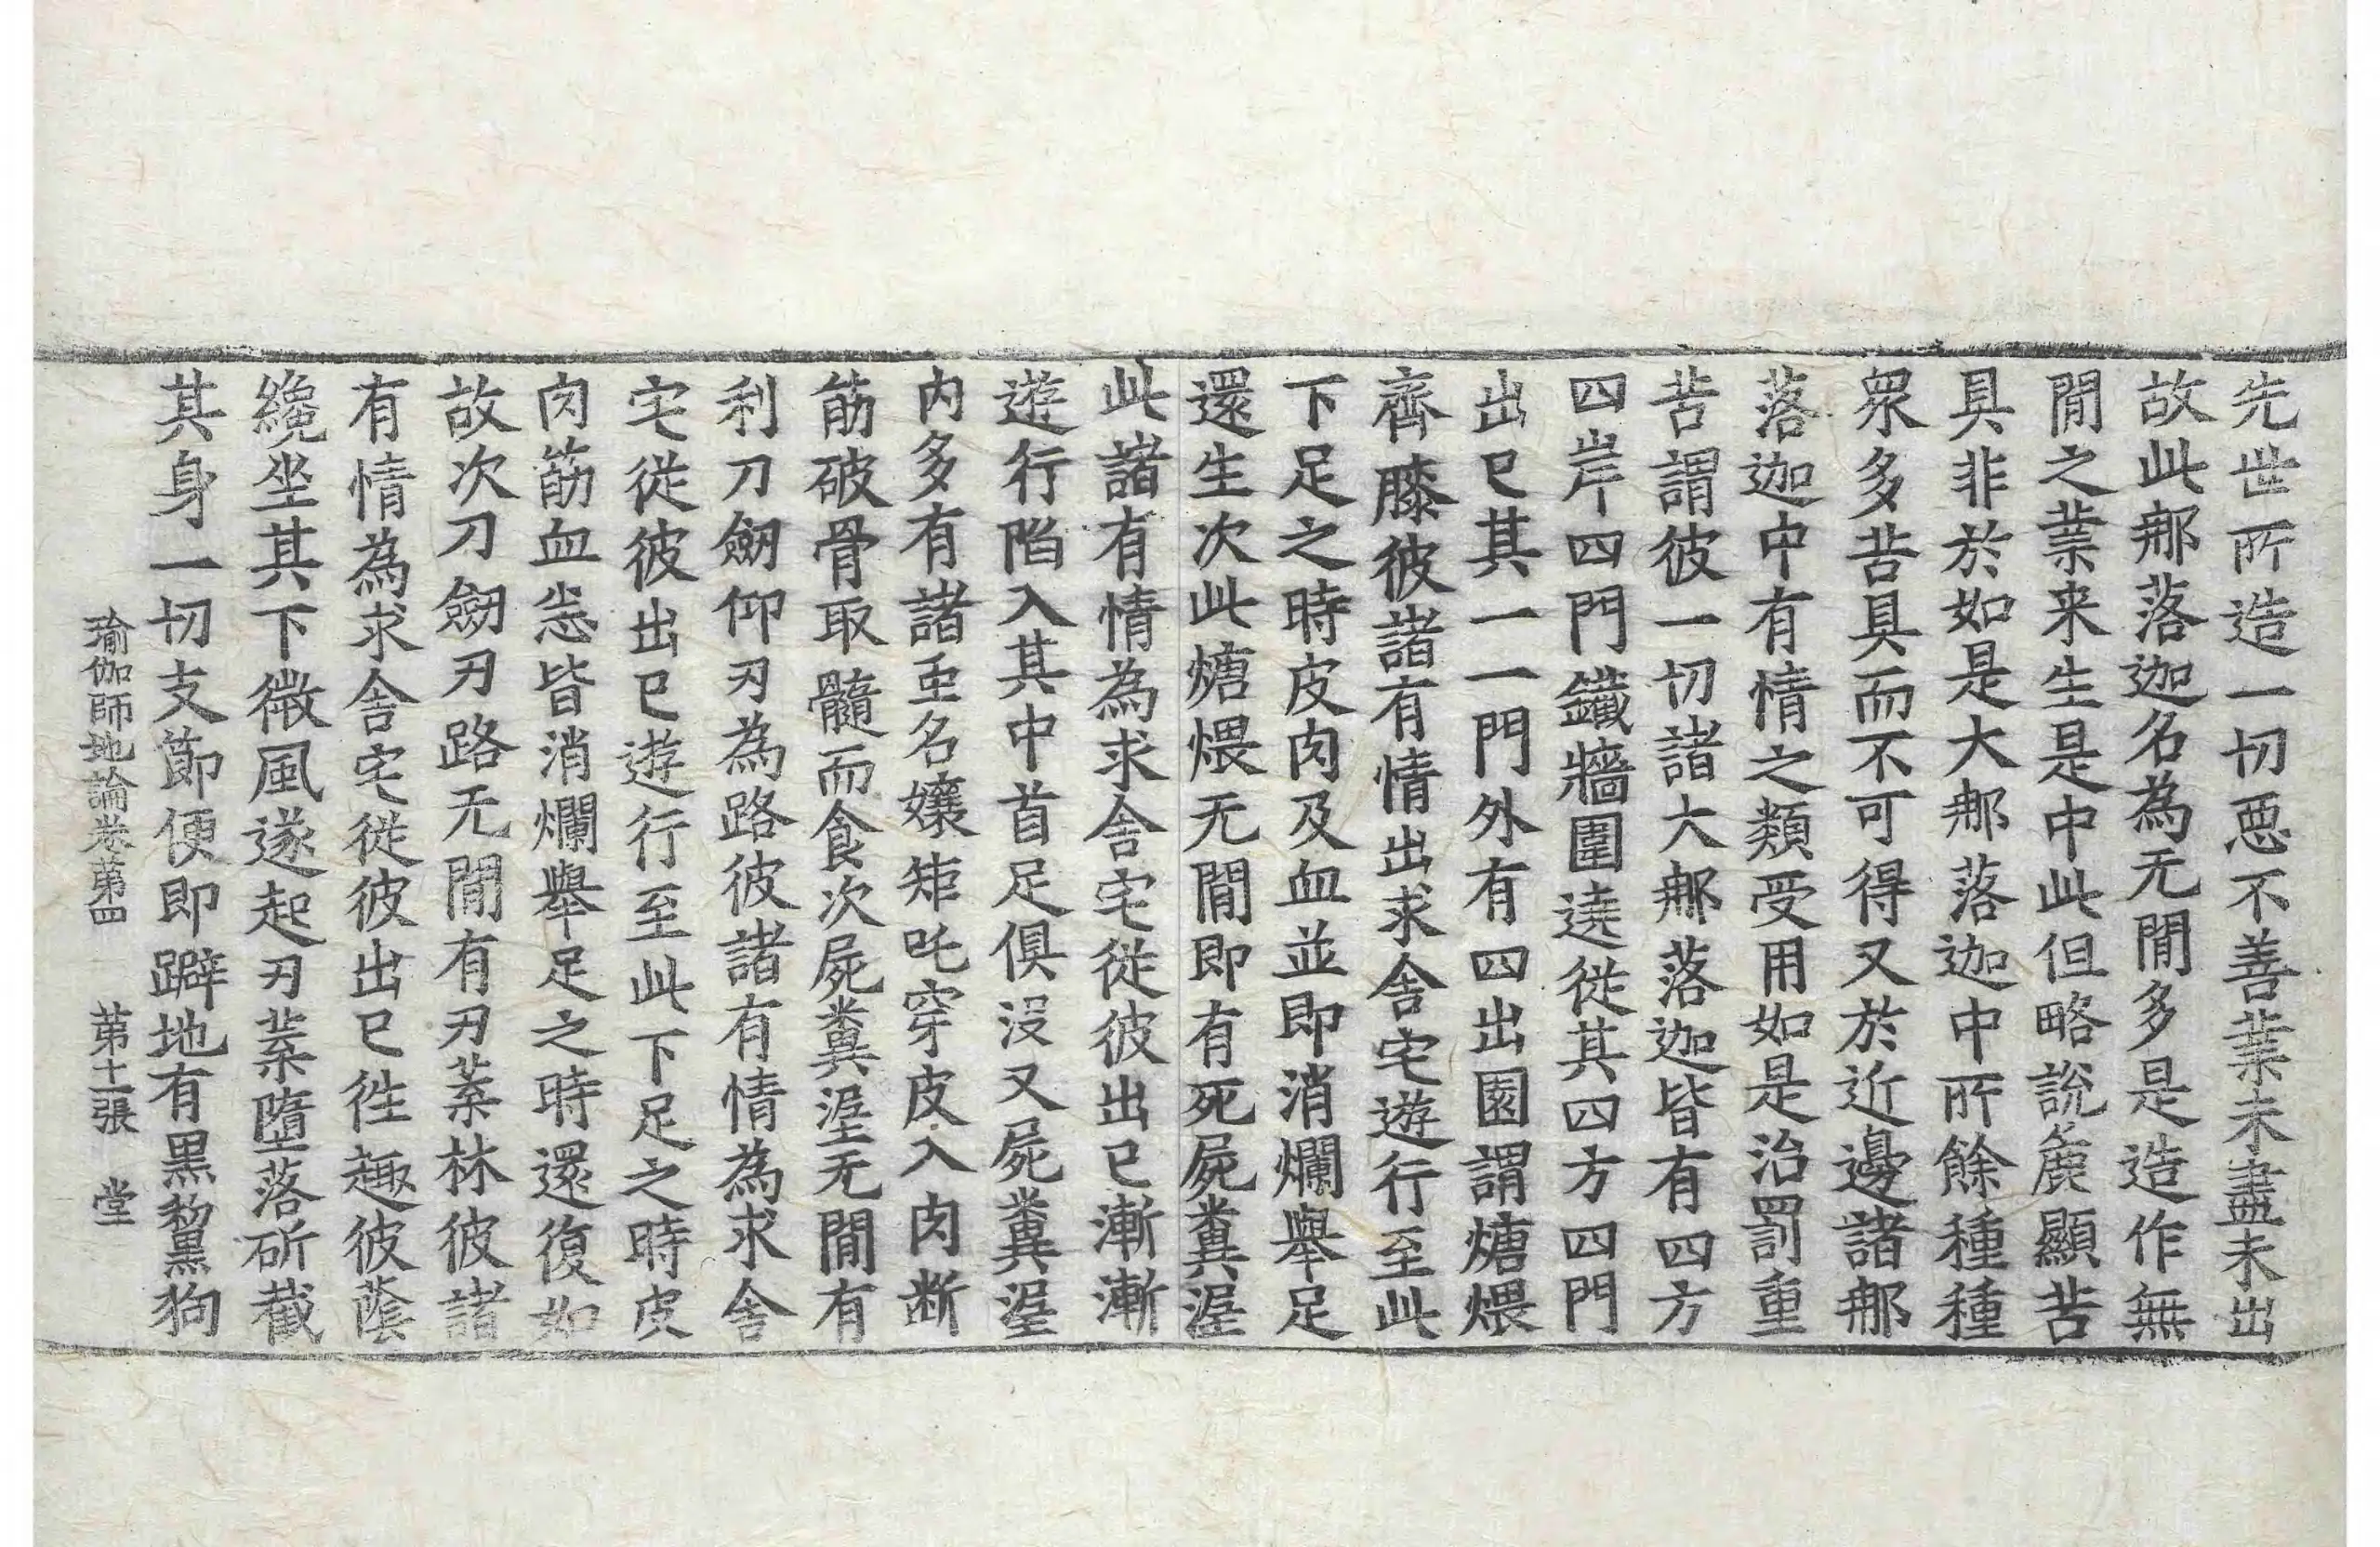 先世所造一切惡不善業未盡未出
故此那落迦名為无間多是造作無
間之業来生是中此但略說麁顯苦
具非於如是大那落迦中所餘種種
衆多苦具而不可得又於近邊諸那
落迦中有情之類受用如是治罰重
苦謂彼一切諸大那落迦皆有四方
四岸四門鐵牆圍遶從其四方四門
出已其一一門外有四出園謂煻煨
齊膝彼諸有情出求舍宅遊行至此
下足之時皮肉及血並即消爛舉足
還生次此煻煨无間即有死屍糞涅
此諸有情為求舍宅從彼出已漸漸
遊行陷入其中首足俱沒又屍糞涅
内多有諸虫名孃矩吒穿皮入肉断
筋破骨取髓而食次屍糞涅无間有
利刀劒仰刃為路彼諸有情為求舍
宅從彼出已遊行至此下足之時皮
肉筋血悉皆消爛舉足之時還復如
故次刀劒刃路无間有刃葉林彼諸
有情為求舍宅從彼出已徃趣彼蔭
纔坐其下微風遂起刃葉墮落斫截
其身一切支節便即躃地有黑黧狗
瑜伽師地論卷第四 第十二張 堂